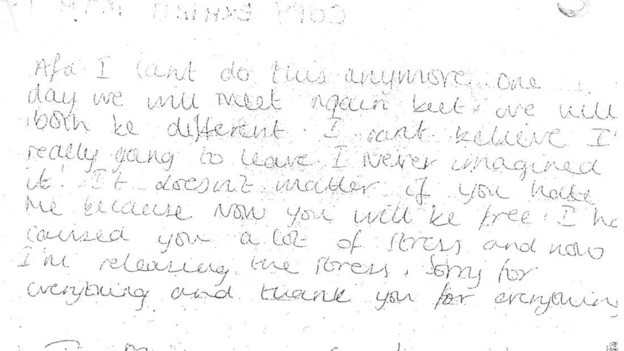 COPY EXHIBIT
Afa I cant do this anymore. One
day we will meet again but we will
both be different. I cant believe I'
really going to leave. I never imagined
it! It doesn't matter if you hate
me because now you will be free. I ha
caused you a lot of stress and now
I'm releasing the stress. Sorry for
everything and thank you for everything